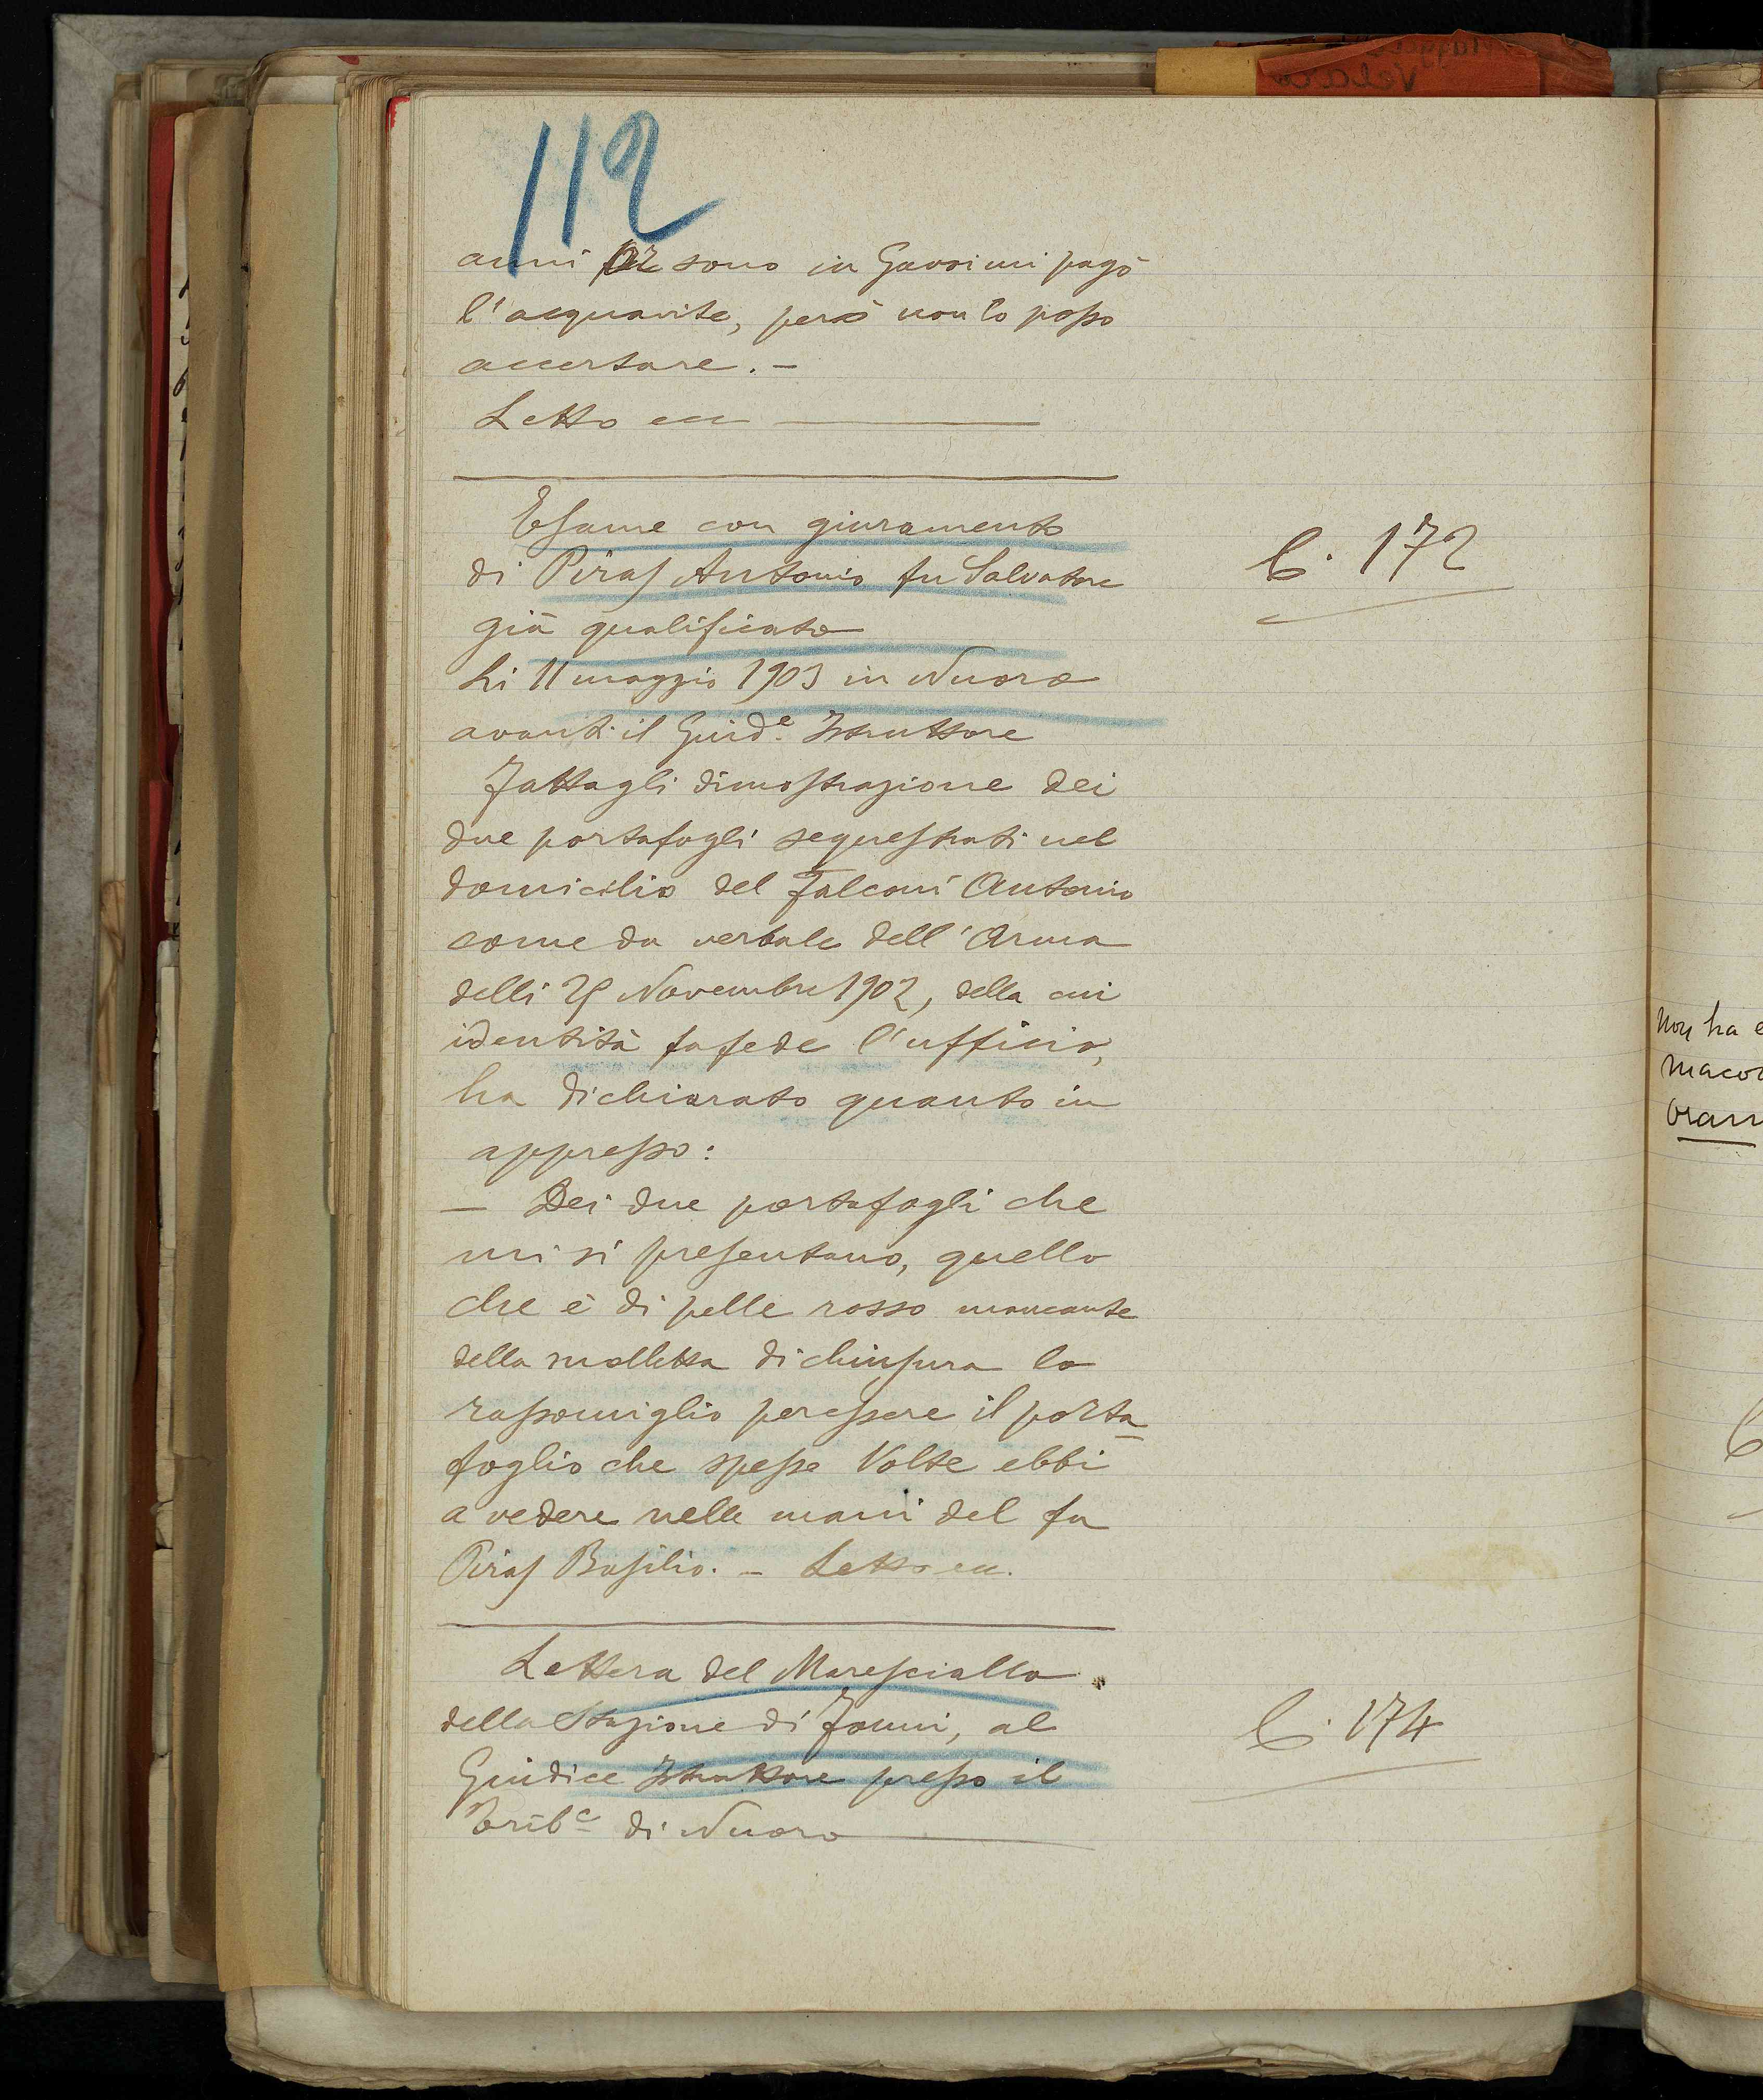 112
anni or sono in Gavoi mi pagò
l'acquavite, però non lo posso
accertare. –
Letto ecc
Esame con giuramento
C. 172
di Piras Antonio fu Salvatore
già qualificato
Li 11 maggio 1903 in Nuoro
avanti il Giud.e Istruttore
Fattagli dimostrazione dei
due portafogli sequestrati nel
domicilio del Falconi Antonio
come da verbale dell'Arma
delli Novembre 1902, della cui
identità fa fede l'ufficio,
ha dichiarato quanto in
appresso:
– Dei due portafogli che
mi si presentano, quello
che è di pelle rosso mancante
della molletta di chiusura lo
rassomiglio per essere il porta
foglio che spesse Volte ebbi
a vedere nelle mani del fu
Piras Basilio. – Letto ecc.
Lettera del Maresciallo
della Stazione di Fonni, al
C. 174
Giudice Istruttore presso il
Trib.e di Nuoro
Non ha